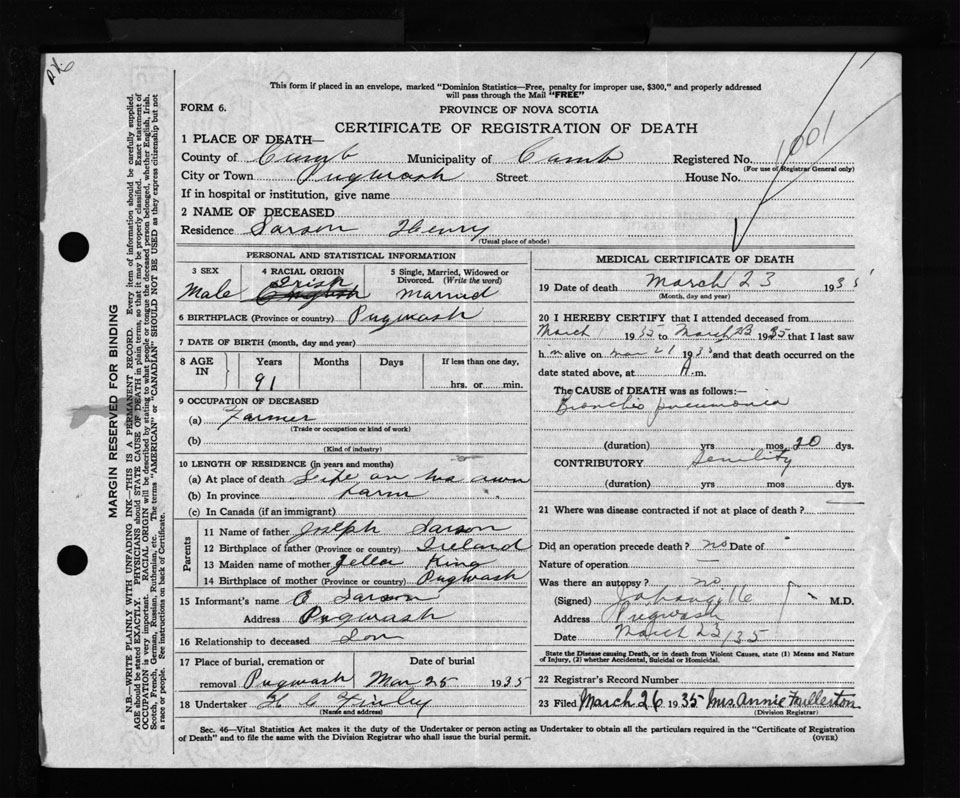 This form if placed in an envelope, marked "Dominion Statistics—Free, penalty for improper use, $300," and properly addressed
will pass through the Mail "FREE"
FORM 6.
PROVINCE OF NOVA SCOTIA
CERTIFICATE OF REGISTRATION OF DEATH
1 PLACE OF DEATH—
County of Cumb Municipality of Cumb Registered No. 1001
(For use of Registrar General only)
City or Town Pugwash Street House No.
If in hospital or institution, give name
2 NAME OF DECEASED
Residence Sarson Henry
(Usual place of abode)
PERSONAL AND STATISTICAL INFORMATION
3 SEX 4 RACIAL ORIGIN 5 Single, Married, Widowed or Divorced. (Write the word)
Male Irish English Married
6 BIRTHPLACE (Province or country) Pugwash
7 DATE OF BIRTH (month, day and year)
8 AGE IN Years Months Days If less than one day,
91 hrs. or min.
9 OCCUPATION OF DECEASED
(a) Farmer
(Trade or occupation or kind of work)
(b)
(Kind of industry)
10 LENGTH OF RESIDENCE (in years and months)
(a) At place of death Life on his own
(b) In province Farm
(c) In Canada (if an immigrant)
Parents
11 Name of father Joseph Sarson
12 Birthplace of father (Province or country) Ireland
13 Maiden name of mother King
14 Birthplace of mother (Province or country) Pugwash
15 Informant's name O Sarson
Address Pugwash
16 Relationship to deceased Son
17 Place of burial, cremation or Date of burial
removal Pugwash Mar 25 1935
18 Undertaker
(Name and address)
MEDICAL CERTIFICATE OF DEATH
19 Date of death March 23 1935
(Month, day and year)
20 I HEREBY CERTIFY that I attended deceased from
March 1 1935 to March 23 1935 that I last saw
h im alive on Mar 21 1935 and that death occurred on the
date stated above, at A. m.
The CAUSE of DEATH was as follows:—
Broncho pneumonia
(duration) yrs mos 20 dys.
CONTRIBUTORY Senility
(duration) yrs mos dys.
21 Where was disease contracted if not at place of death?
Did an operation precede death? no Date of
Nature of operation —
Was there an autopsy? no
(Signed) M.D.
Address Pugwash
Date March 23/35
State the Disease causing Death, or in death from Violent Causes, state (1) Means and Nature
of Injury, (2) whether Accidental, Suicidal or Homicidal.
22 Registrar's Record Number
23 Filed March 26 1935 Mrs. Annie Fullerton
(Division Registrar)
Sec. 46—Vital Statistics Act makes it the duty of the Undertaker or person acting as Undertaker to obtain all the particulars required in the "Certificate of Registration
of Death" and to file the same with the Division Registrar who shall issue the burial permit. (OVER)
MARGIN RESERVED FOR BINDING
N.B.—WRITE PLAINLY WITH UNFADING INK—THIS IS A PERMANENT RECORD. Every item of information should be carefully supplied.
AGE should be stated EXACTLY. PHYSICIANS should STATE CAUSE OF DEATH in plain terms, so that it may be properly classified. Exact statement of
OCCUPATION is very important. RACIAL ORIGIN will be described by stating to what people or tongue the deceased person belonged, whether English, Irish,
Scotch, French, German, Russian, Routhenian, etc. The terms "AMERICAN" or "CANADIAN" SHOULD NOT BE USED as they express citizenship but not
a race or people. See instructions on back of Certificate.